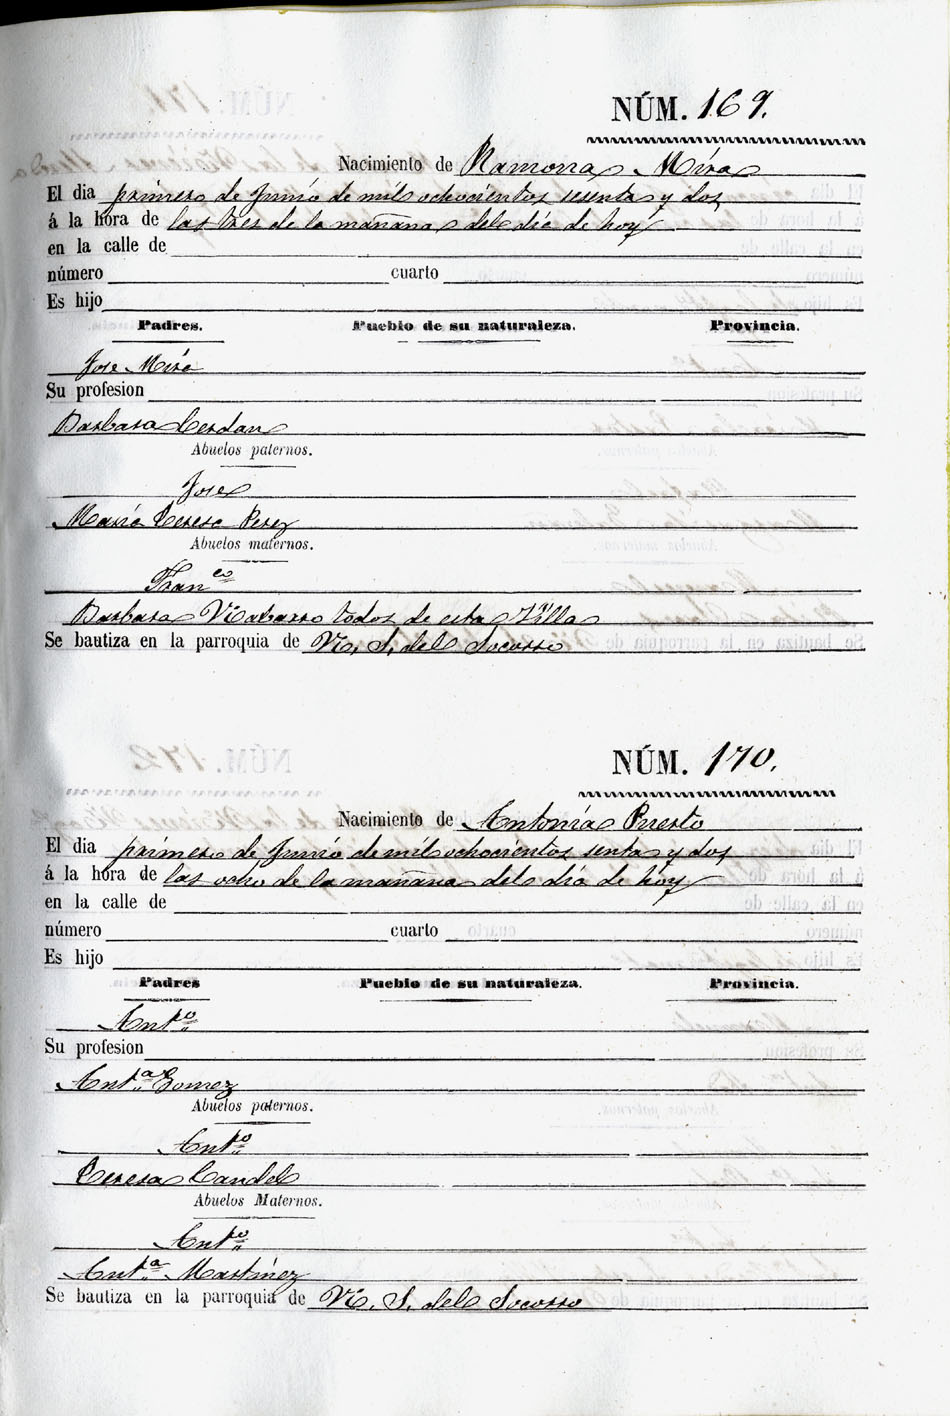 NÚM. 169.
Nacimiento de Ramona Mira
El dia primero de Junio de mil ochocientos sesenta y dos
á la hora de las tres de la mañana del dia de hoy
en la calle de
número cuarto
Es hijo
Padres. Pueblo de su naturaleza. Provincia.
Jose Mira
Su profesion
Barbara Cerdan
Abuelos paternos.
Jose
Maria Teresa Perez
Abuelos maternos.
Franco
Barbara Navarro todos de esta Villa
Se bautiza en la parroquia de N. S. del Socorro
NÚM. 170.
Nacimiento de Antonia Puerto
El dia primero de Junio de mil ochocientos senta y dos
á la hora de las ocho de la mañana del dia de hoy
en la calle de
número cuarto
Es hijo
Padres Pueblo de su naturaleza. Provincia.
Anto
Su profesion
Anta Gomez
Abuelos paternos.
Anto
Teresa Candel
Abuelos Maternos.
Anto
Anta Martinez
Se bautiza en la parroquia de N. S. del Socorro